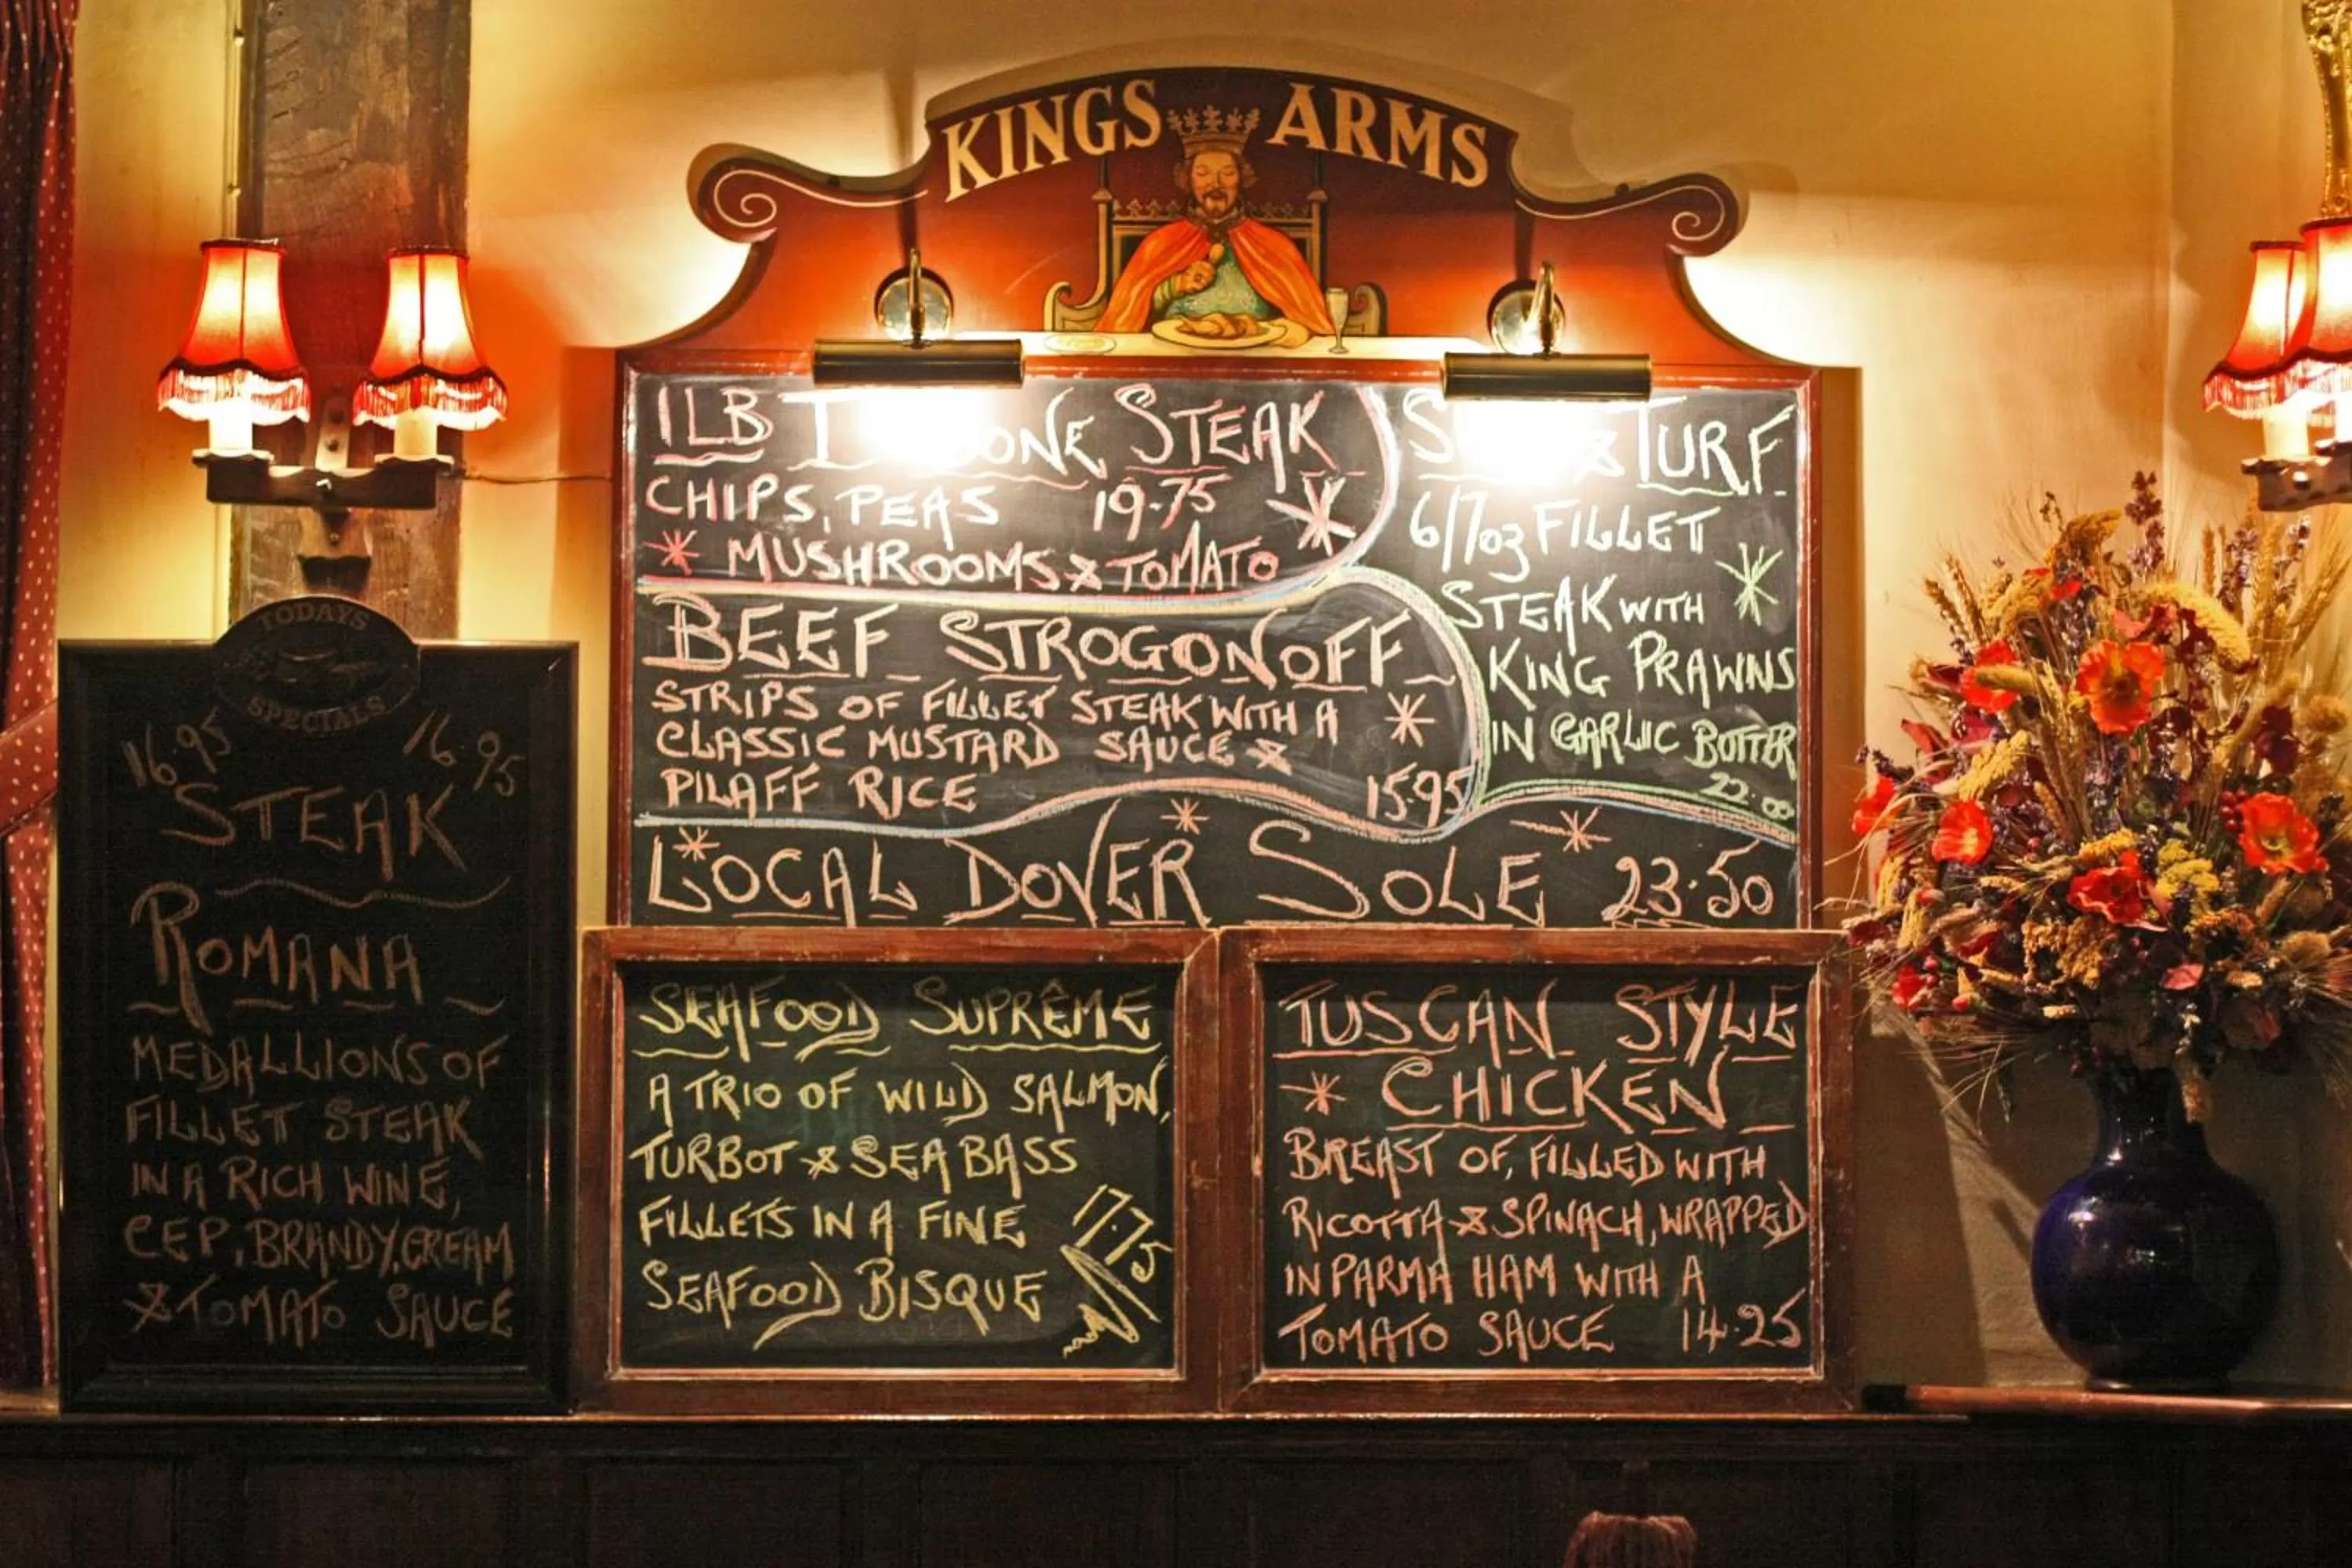 KINGS ARMS
1LB T BONE STEAK
CHIPS, PEAS 19.75
MUSHROOMS & TOMATO
& TURF
6/7oz FILLET
STEAK WITH
KING PRAWNS
IN GARLIC BUTTER
22.00
BEEF STROGONOFF
STRIPS OF FILLET STEAK WITH A
CLASSIC MUSTARD SAUCE &
PILAFF RICE 15.95
LOCAL DOVER SOLE 23.50
TODAYS
SPECIALS
16.95 16.95
STEAK
ROMANA
MEDALLIONS OF
FILLET STEAK
IN A RICH WINE,
CEP, BRANDY, CREAM
& TOMATO SAUCE
SEAFOOD SUPRÊME
A TRIO OF WILD SALMON,
TURBOT & SEA BASS
FILLETS IN A FINE
SEAFOOD BISQUE
17.75
TUSCAN STYLE
CHICKEN
BREAST OF, FILLED WITH
RICOTTA & SPINACH, WRAPPED
IN PARMA HAM WITH A
TOMATO SAUCE 14.25